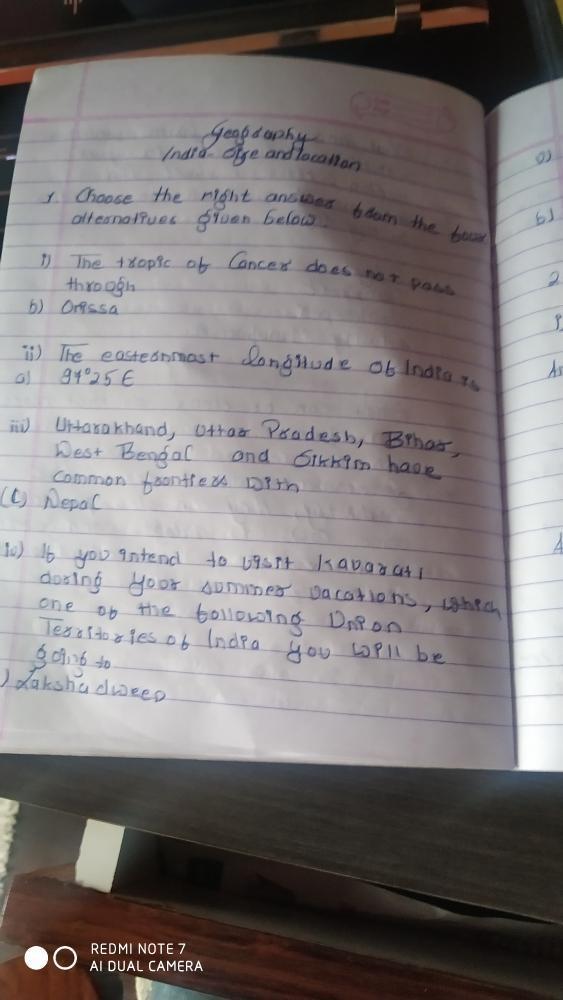 Geography
India - Size and location
1. Choose the right answer from the four
alternatives given below.
i) The tropic of Cancer does not pass
through
b) Orissa
ii) The easternmost longitude of India is
a) 97°25 E
iii) Uttarakhand, Uttar Pradesh, Bihar,
West Bengal and Sikkim have
common frontiers with
(C) Nepal
iv) If you intend to visit Kavarati
during your summer vacations, which
one of the following Union
Territories of India you will be
going to
) Lakshadweep
a)
b)
2
A
REDMI NOTE 7
AI DUAL CAMERA